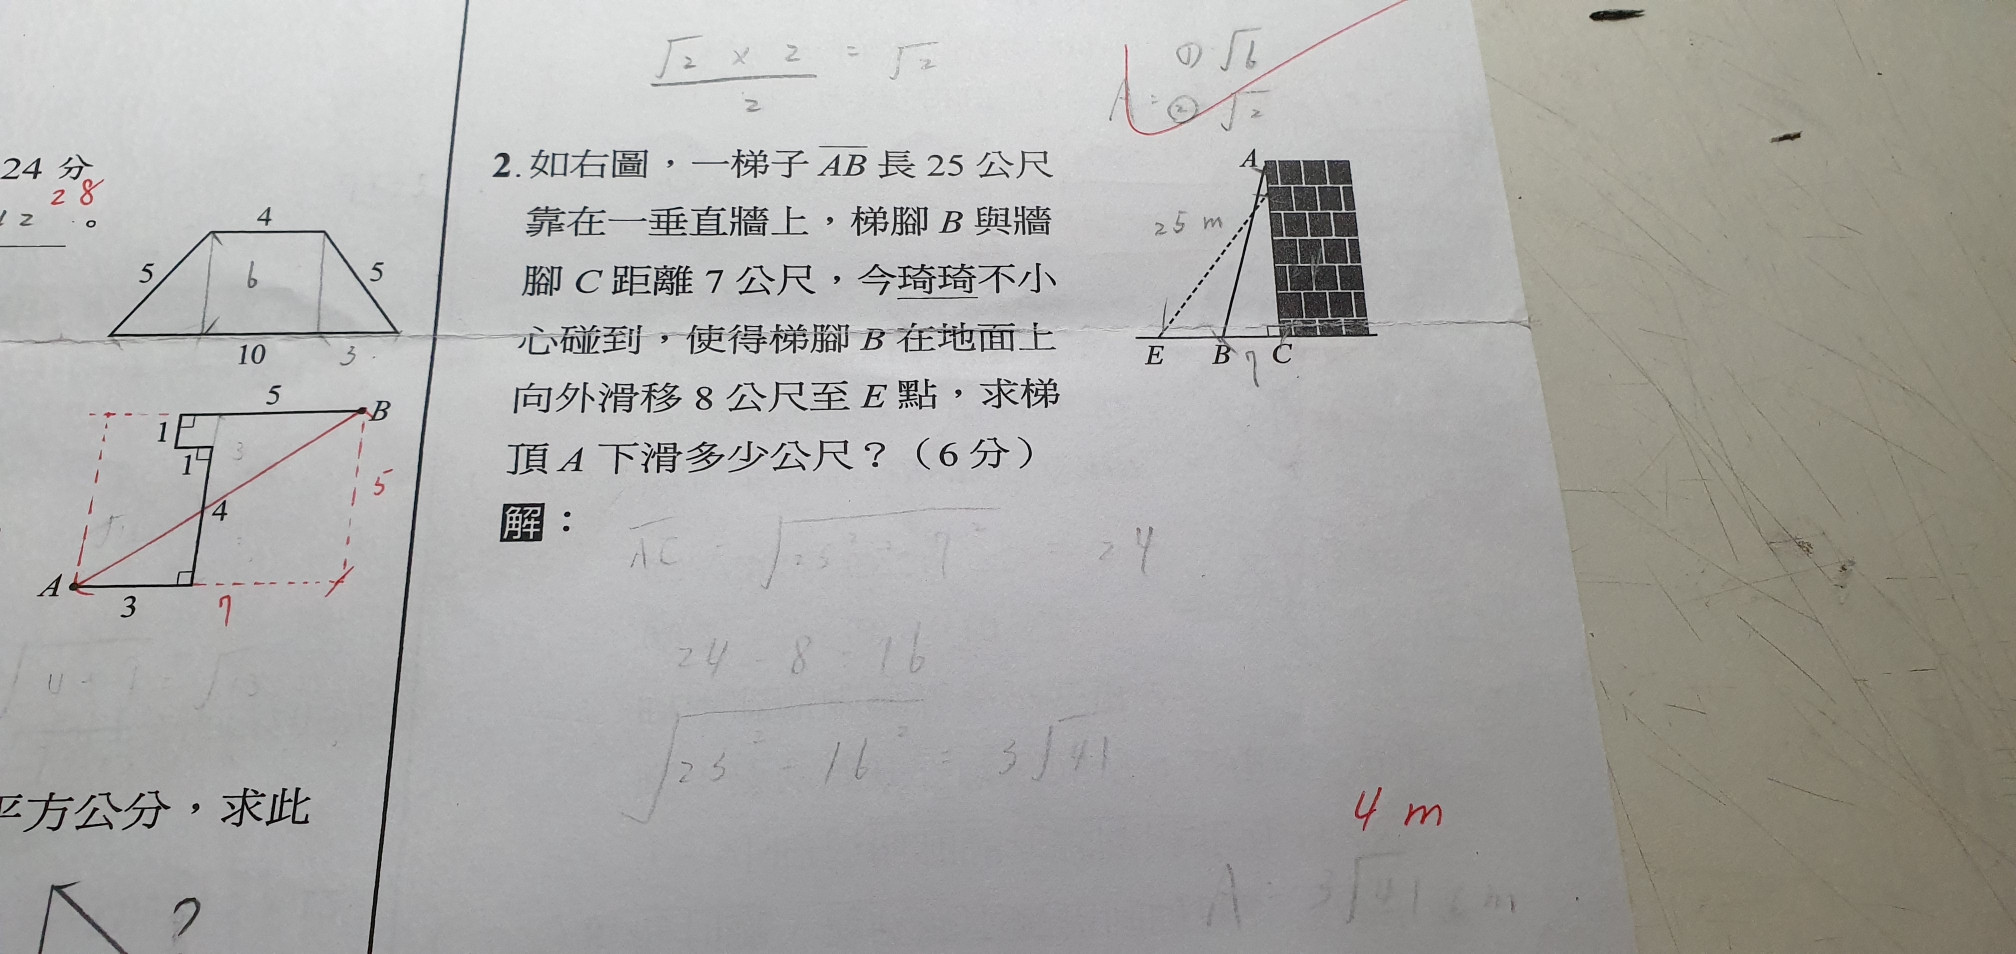 24 分
28
12 。
4
5
6
5
10
3
5
B
1
1
3
5
4
A
3
7
平方公分，求此
?
√2 × 2 = √2
2
① √6
A = ② √2
2. 如右圖，一梯子 AB 長 25 公尺
靠在一垂直牆上，梯腳 B 與牆
腳 C 距離 7 公尺，今琦琦不小
心碰到，使得梯腳 B 在地面上
向外滑移 8 公尺至 E 點，求梯
頂 A 下滑多少公尺？（6 分）
A
25 m
E B C
7
解：
AC = √25² - 7² = 24
24 - 8 = 16
√25² - 16² = 3√41
4 m
A = 3√41 m